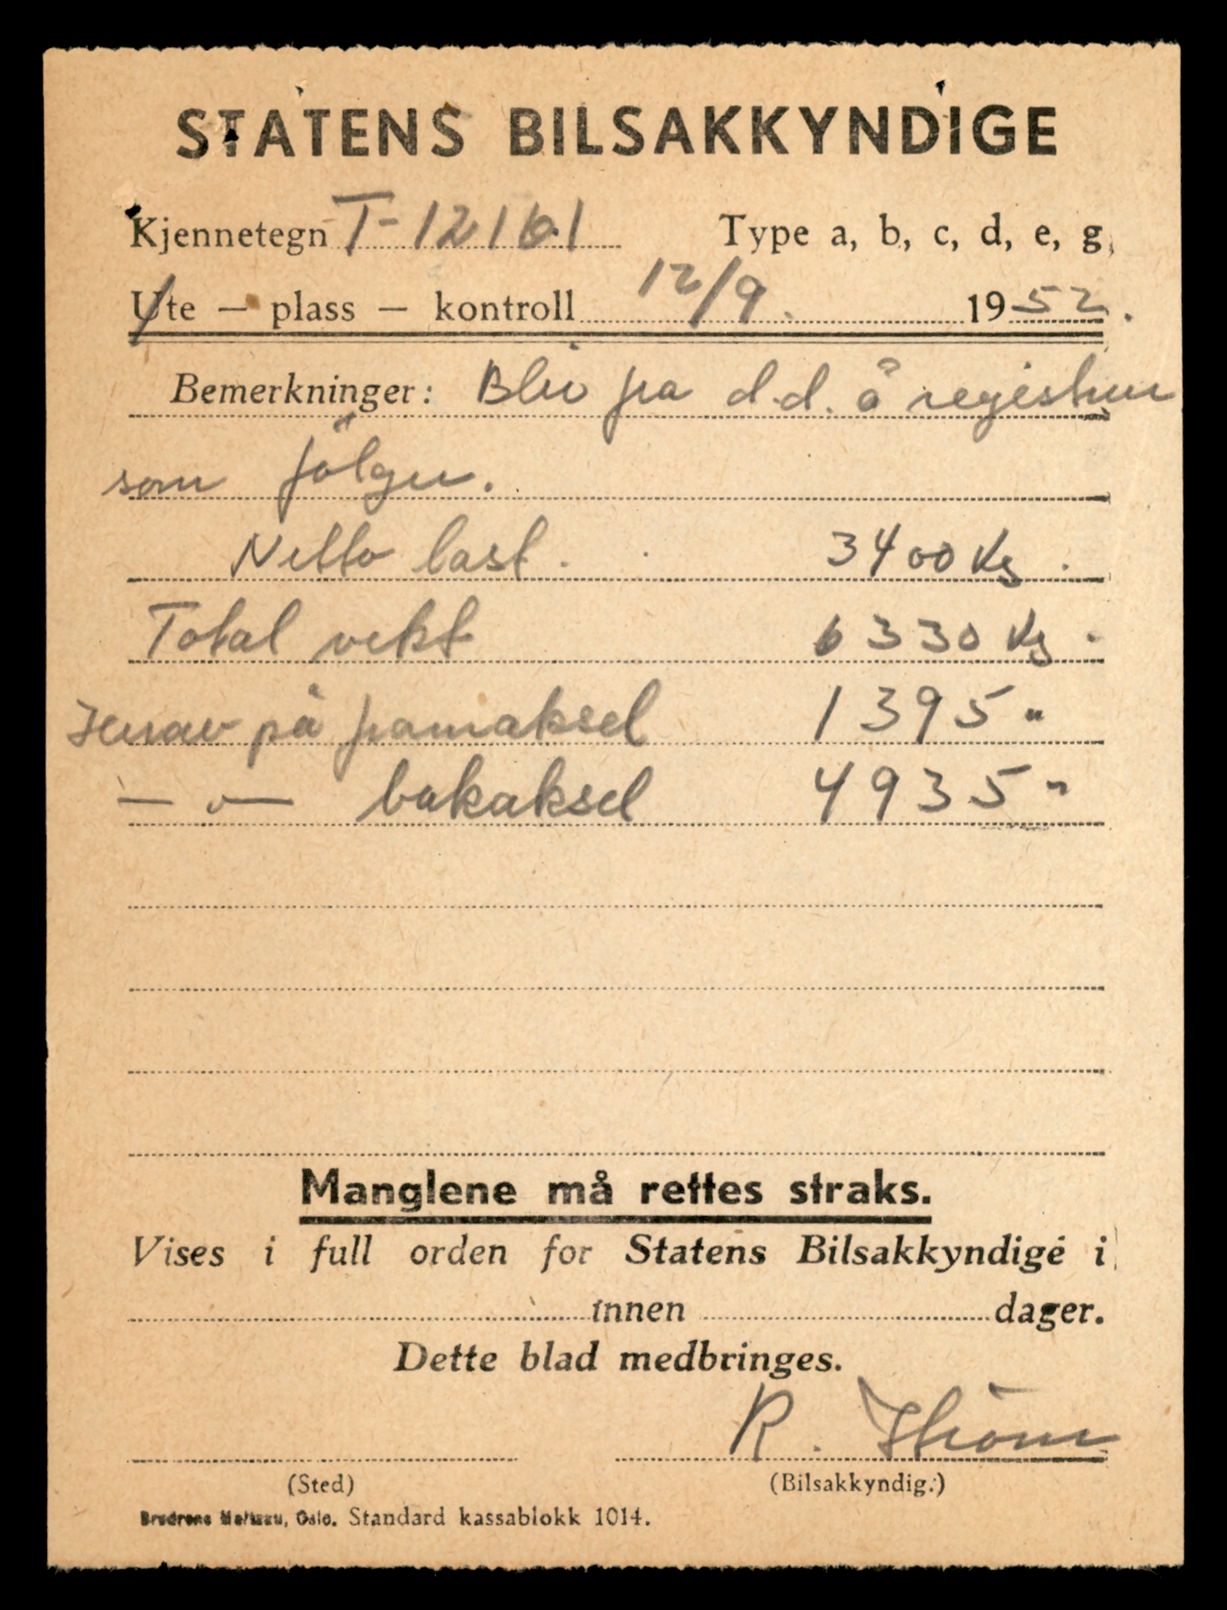 STATENS BILSAKKYNDIGE
Kjennetegn T-12161 Type a, b, c, d, e, g,
Ute — plass — kontroll 12/9. 1952.
Bemerkninger: Blir fra d.d. å registrer
som følger.
Netto last. 3400 Kg.
Total vekt 6330 Kg.
Herav på framaksel 1395 "
— " — bakaksel 4935 "
Manglene må rettes straks.
Vises i full orden for Statens Bilsakkyndige i
innen dager.
Dette blad medbringes.
R.
(Sted) (Bilsakkyndig.)
Oslo. Standard kassablokk 1014.